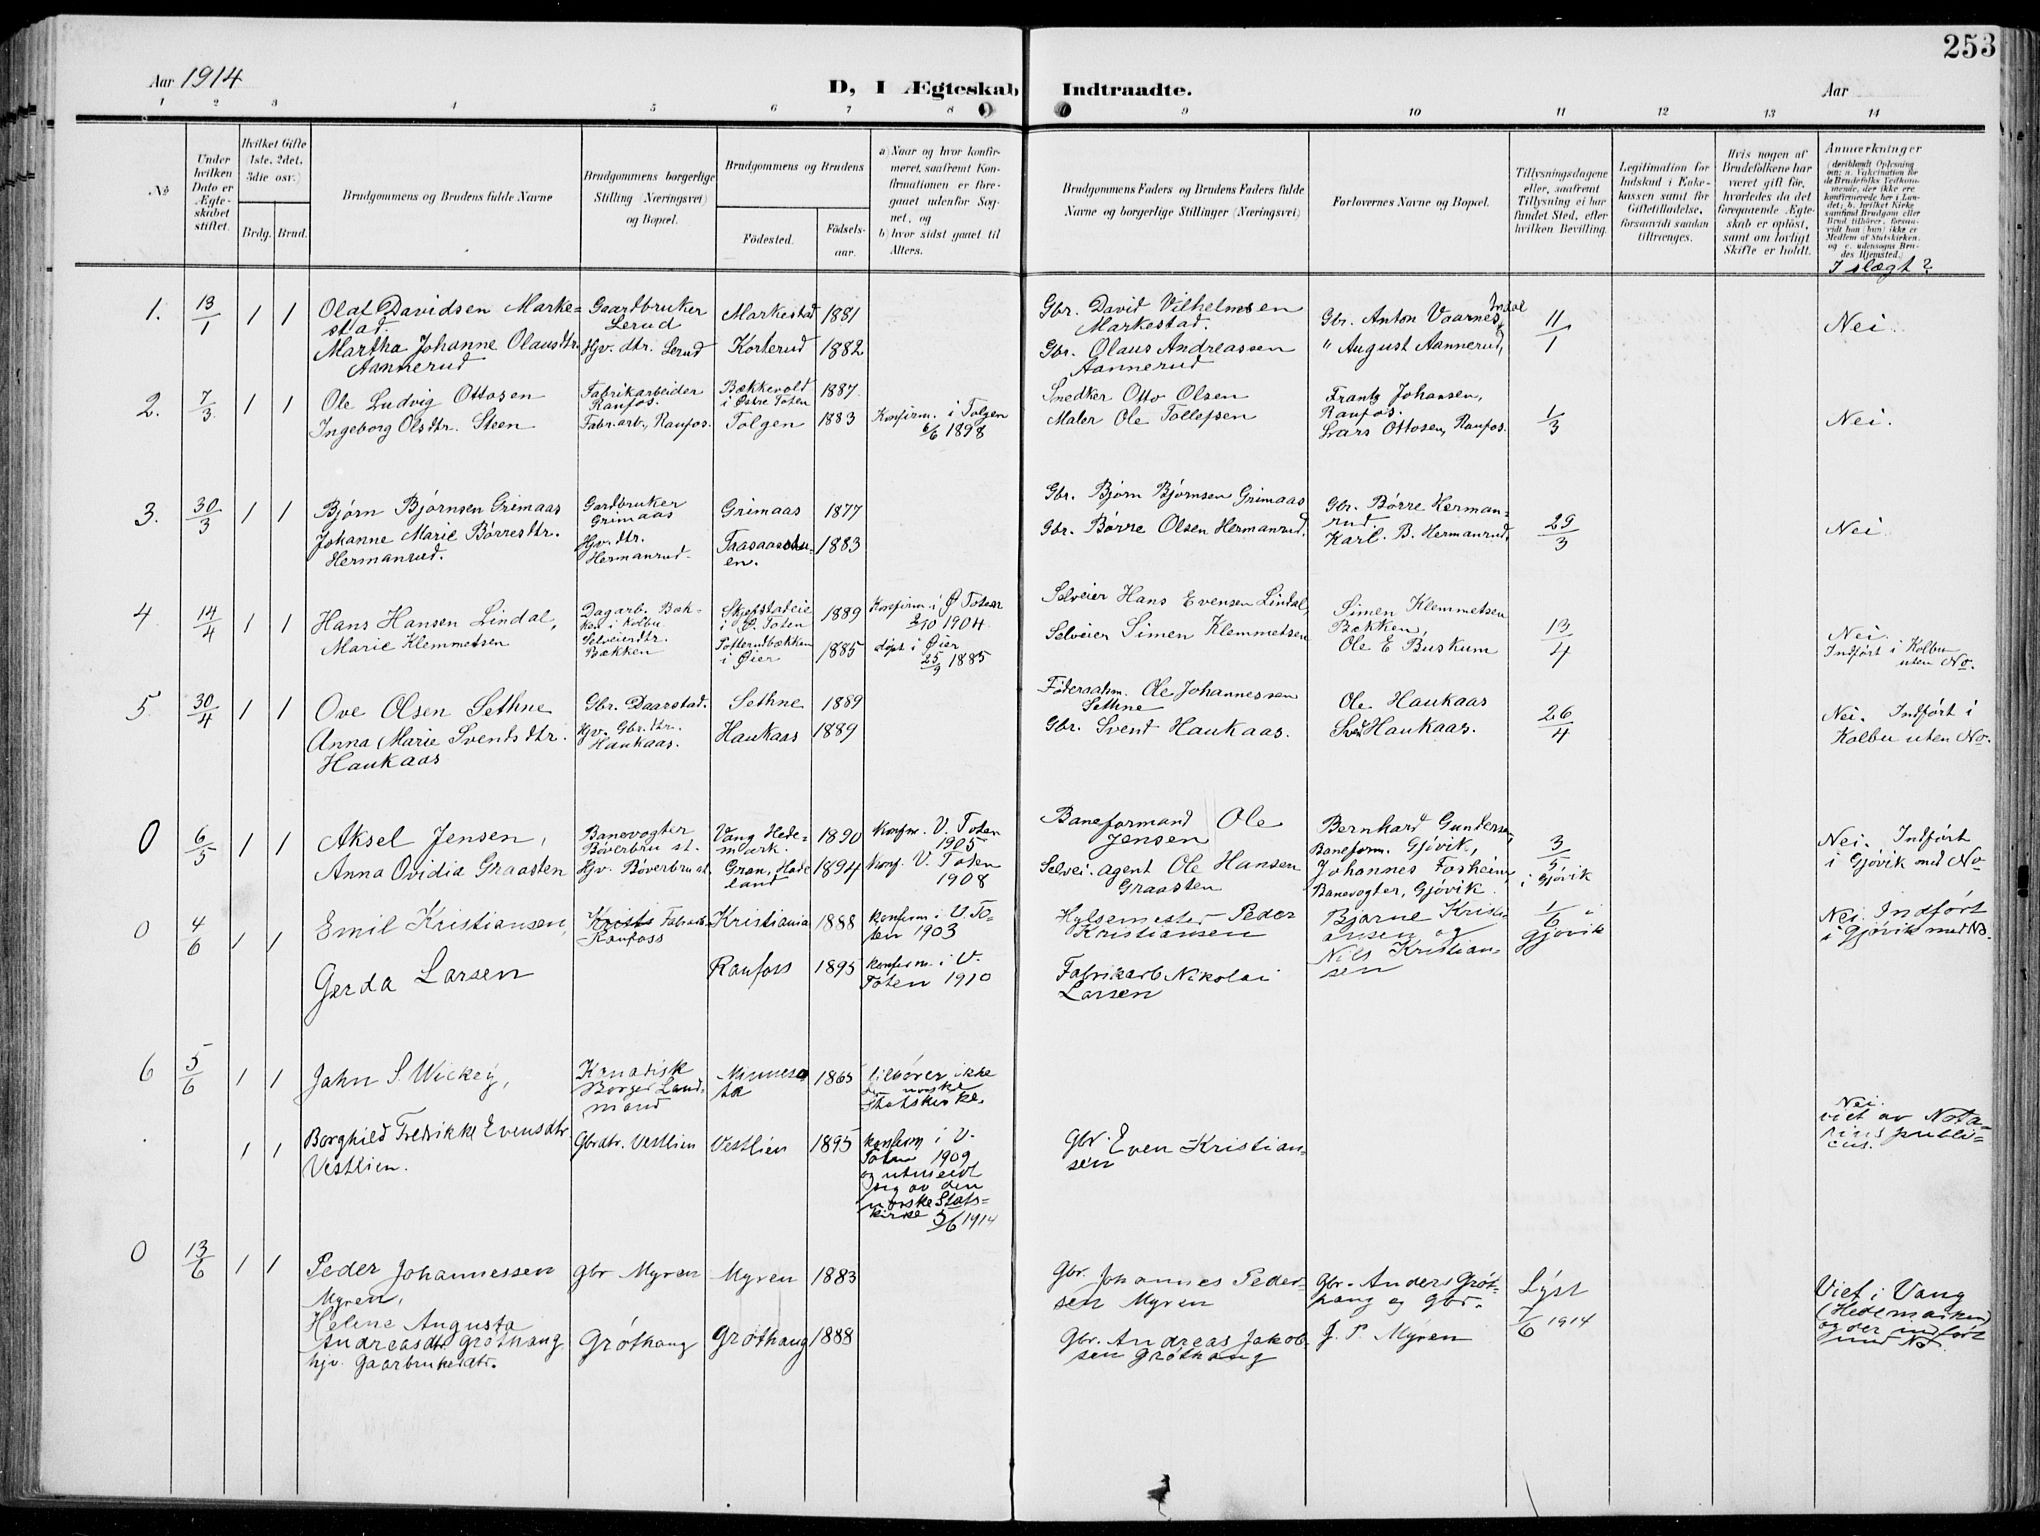 253
Aar 1914
D, I Ægteskab Indtraadte.
Aar
1 2 3 4 5 6 7 8 9 10 11 12 13 14
No
Under hvilken Dato er Ægteskabet stiftet.
Hvilket Gifte 1ste, 2det, 3die osv.)
Brdg. Brud.
Brudgommens og Brudens fulde Navne
Brudgommens borgerlige Stilling (Næringsvei) og Bopæl.
Brudgommens og Brudens
Födested.
Födselsaar.
a) Naar og hvor konfirmeret, saafremt Konfirmationen er foregaaet udenfor Sognet, og
b) hvor sidst gaaet til Alters.
Brudgommens Faders og Brudens Faders fulde Navne og borgerlige Stillinger (Næringsvei)
Forlovernes Navne og Bopæl.
Tillysningsdagene eller, saafremt Tillysning ei har fundet Sted, efter hvilken Bevilling.
Legitimation for Indskud i Enkekassen samt for Giftetilladelse, forsaavidt saadan tiltrænges.
Hvis nogen af Brudefolkene har været gift för, hvorledes da det foregaaende Ægteskab er oplöst, samt om lovligt Skifte er holdt.
Anmærkninger
(deriblandt Oplysning om: a. Vakcination for de Brudefolks Vedkommende, der ikke ere konfirmerede her i Landet; b. hvilket Kirkesamfund Brudgom eller Brud tilhörer, forsaavidt han (hun) ikke er Medlem af Statskirken, og c. udensogns Brudes Hjemsted.)
I slægt?
1. 13/1 1 1 Olaf Davidsen Markestad. Gaardbruker Lerud Markestad 1881 Gbr. David Vilhelmsen Markestad. Gbr. Anton Vaarnes, Indal 11/1 Nei.
Martha Johanne Olausdtr. Aannerud Hjv. dtr. Lerud Korterud 1882 Gbr. Olaus Andreassen Aannerud " August Aannerud,
2. 7/3 1 1 Ole Ludvig Ottosen Fabrikarbeider Raufos. Bækkevold i Østre Toten 1887 Snedker Otto Olsen Frantz Johansen, Raufos. 1/3 Nei.
Ingeborg Olsdtr. Steen Fabr.arb., Raufos. Tolgen 1883 Konfirm. i Tolgen 6/6 1898 Maler Ole Tollefsen Lars Ottosen, Raufos.
3. 30/3 1 1 Bjørn Bjørnsen Grimaas Gardbruker Grimaas Grimaas 1877 Gbr. Bjørn Bjørnsen Grimaas Gbr. Børre Hermanrud 29/3 Nei.
Johanne Marie Børresdtr. Hermanrud. Hjv. dtr. Hermanrud. 1883 Gbr. Børre Olsen Hermanrud. Karl. B. Hermanrud.
4 14/4 1 1 Hans Hansen Lindal, Dagarb. Bækken i Kolbu Skjefstadeie i Ø. Toten 1889 Konfirm. i Ø Toten 2/10 1904. Selveier Hans Evensen Lindal, Simen Klemmetsen Bækken, 13/4 Nei. Indført i Kolbu uten No.
Marie Klemmetsen Selveierdtr. Bækken i Øier 1885 døpt i Øier 25/3 1885 Selveier Simen Klemmetsen Ole E Buskum
5 30/4 1 1 Ove Olsen Sethne Gbr. Daarstad. Sethne 1889 Føderaadsm. Ole Johannessen Sethne Ole Haukaas 26/4 Nei. Indført i Kolbu uten No.
Anna Marie Svendsdtr. Haukaas Hjv. Gbr. dtr. Haukaas. Haukaas 1889 Gbr. Svend Haukaas. Haukaas.
0 6/5 1 1 Aksel Jensen, Banevogter Bøverbru st. Vang Hedemark. 1890 Konfirm. V. Toten 1905 Baneformand Ole Jensen Bernhard Gundersen, Baneform. Gjøvik, 3/5 i Gjøvik Nei. Indført i Gjøvik med No
Anna Ovidia Graasten Hjv. Bøverbru st. Gran, Hadeland 1894 Konf. V. Toten 1908 Selvei. agent Ole Hansen Graasten Johannes Fosheim, Banevogter, Gjøvik.
0 4/6 1 1 Emil Kristiansen, Raufoss Kristiania 1888 konfirm i V. Toten 1903 Hylsemester Peder Kristiansen Bjarne Kristiansen og Nils Kristiansen 1/6 i Gjøvik Nei. Indført i Gjøvik med No.
Gerda Larsen Raufoss 1895 konfirm. i V. Toten 1910 Fabrikarb Nikolai Larsen
6 5/6 1 1 John S. Wickey, Borger Landmand 1865 tilhører ikke den norske Statskirke. Nei. viet av Notarius publicus.
1 1 Borghild Fredrikke Evensdtr. Vestlien. Gbrdtr. Vestlien Vestlien 1895 konfirm i V. Toten 1909 og utmeldt sig av den norske Statskirke 5/6 1914 Gbr. Even Kristiansen
0 13/6 1 1 Peder Johannessen Myren, Gbr Myren Myren 1883 Gbr. Johannes Pedersen Myren Gbr. Anders Grøthaug og Gbr. J. P. Myren Lyst 7/6 1914 Viet i Vang (Hedemarken) og der indført med No.
Helene Augusta Andreasdtr Grøthaug hjv. Gaarbrukerdtr. Grøthaug Grøthaug 1888 Gbr. Andreas Jakobsen Grøthaug